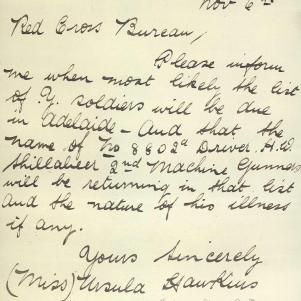 Nov 6th
Red Cross Bureau,
Please inform
me when most likely the list
of Y. soldiers will be due
in Adelaide - And that the
name of No 8602a Driver. H.D.
Shillabeer 2nd Machine Gunners
will be returning in that list
and the nature of his illness
if any.
Yours Sincerely
(Miss) Ursula Hawkins